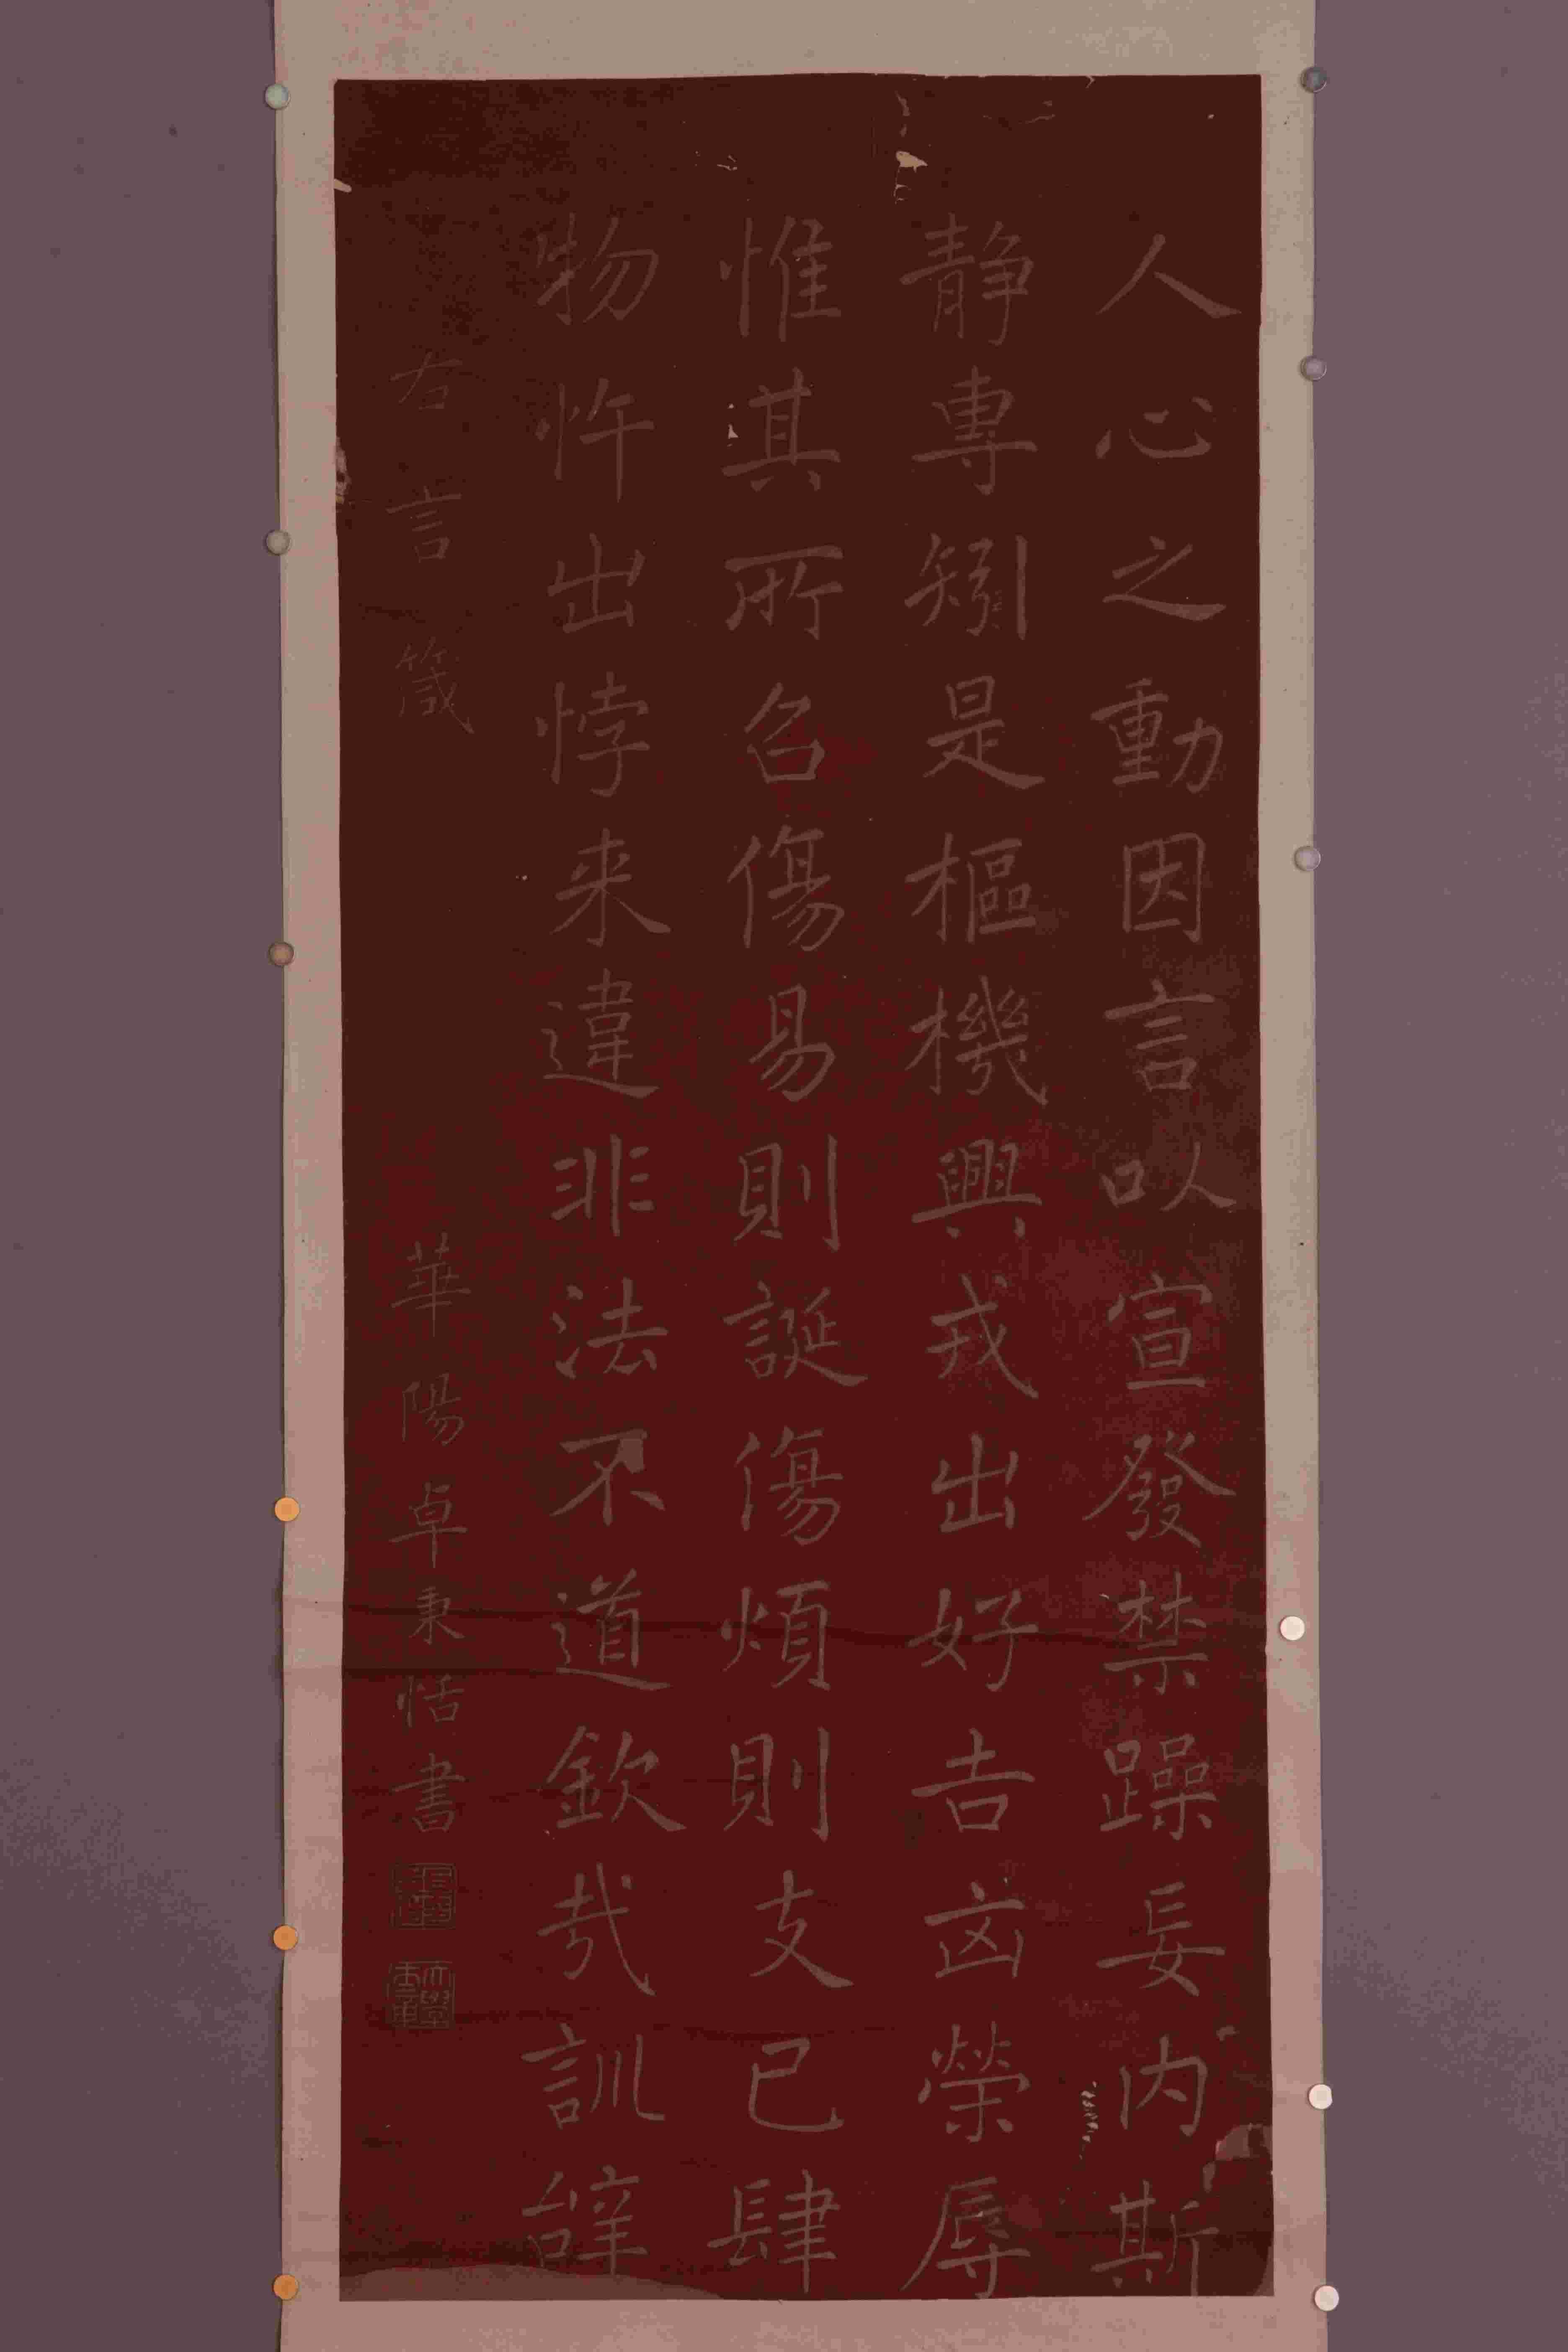 人心之動因言以宣發禁躁妄内斯
静專矧是樞機興戎出好吉凶榮辱
惟其所召傷易則誕傷煩則支已肆
物忤出悖来違非法不道欽哉訓辭
右言箴
華陽卓秉恬書